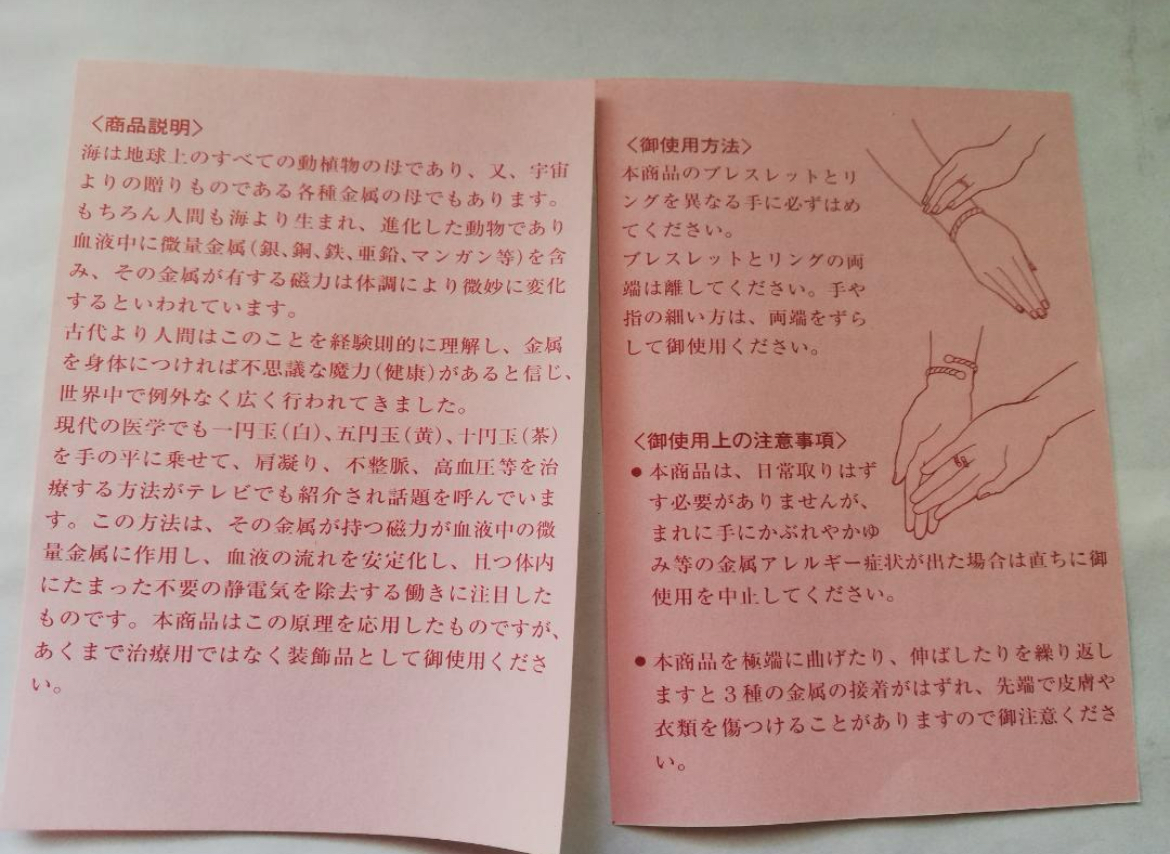 〈商品説明〉
海は地球上のすべての動植物の母であり、又、宇宙
よりの贈りものである各種金属の母でもあります。
もちろん人間も海より生まれ、進化した動物であり
血液中に微量金属(銀、銅、鉄、亜鉛、マンガン等)を含
み、その金属が有する磁力は体調により微妙に変化
するといわれています。
古代より人間はこのことを経験則的に理解し、金属
を身体につければ不思議な魔力(健康)があると信じ、
世界中で例外なく広く行われてきました。
現代の医学でも一円玉(白)、五円玉(黄)、十円玉(茶)
を手の平に乗せて、肩凝り、不整脈、高血圧等を治
療する方法がテレビでも紹介され話題を呼んでいま
す。この方法は、その金属が持つ磁力が血液中の微
量金属に作用し、血液の流れを安定化し、且つ体内
にたまった不要の静電気を除去する働きに注目した
ものです。本商品はこの原理を応用したものですが、
あくまで治療用ではなく装飾品として御使用くださ
い。
〈御使用方法〉
本商品のブレスレットとリ
ングを異なる手に必ずはめ
てください。
ブレスレットとリングの両
端は離してください。手や
指の細い方は、両端をずら
して御使用ください。
〈御使用上の注意事項〉
●本商品は、日常取りはず
す必要がありませんが、
まれに手にかぶれやかゆ
み等の金属アレルギー症状が出た場合は直ちに御
使用を中止してください。
●本商品を極端に曲げたり、伸ばしたりを繰り返し
ますと3種の金属の接着がはずれ、先端で皮膚や
衣類を傷つけることがありますので御注意くださ
い。